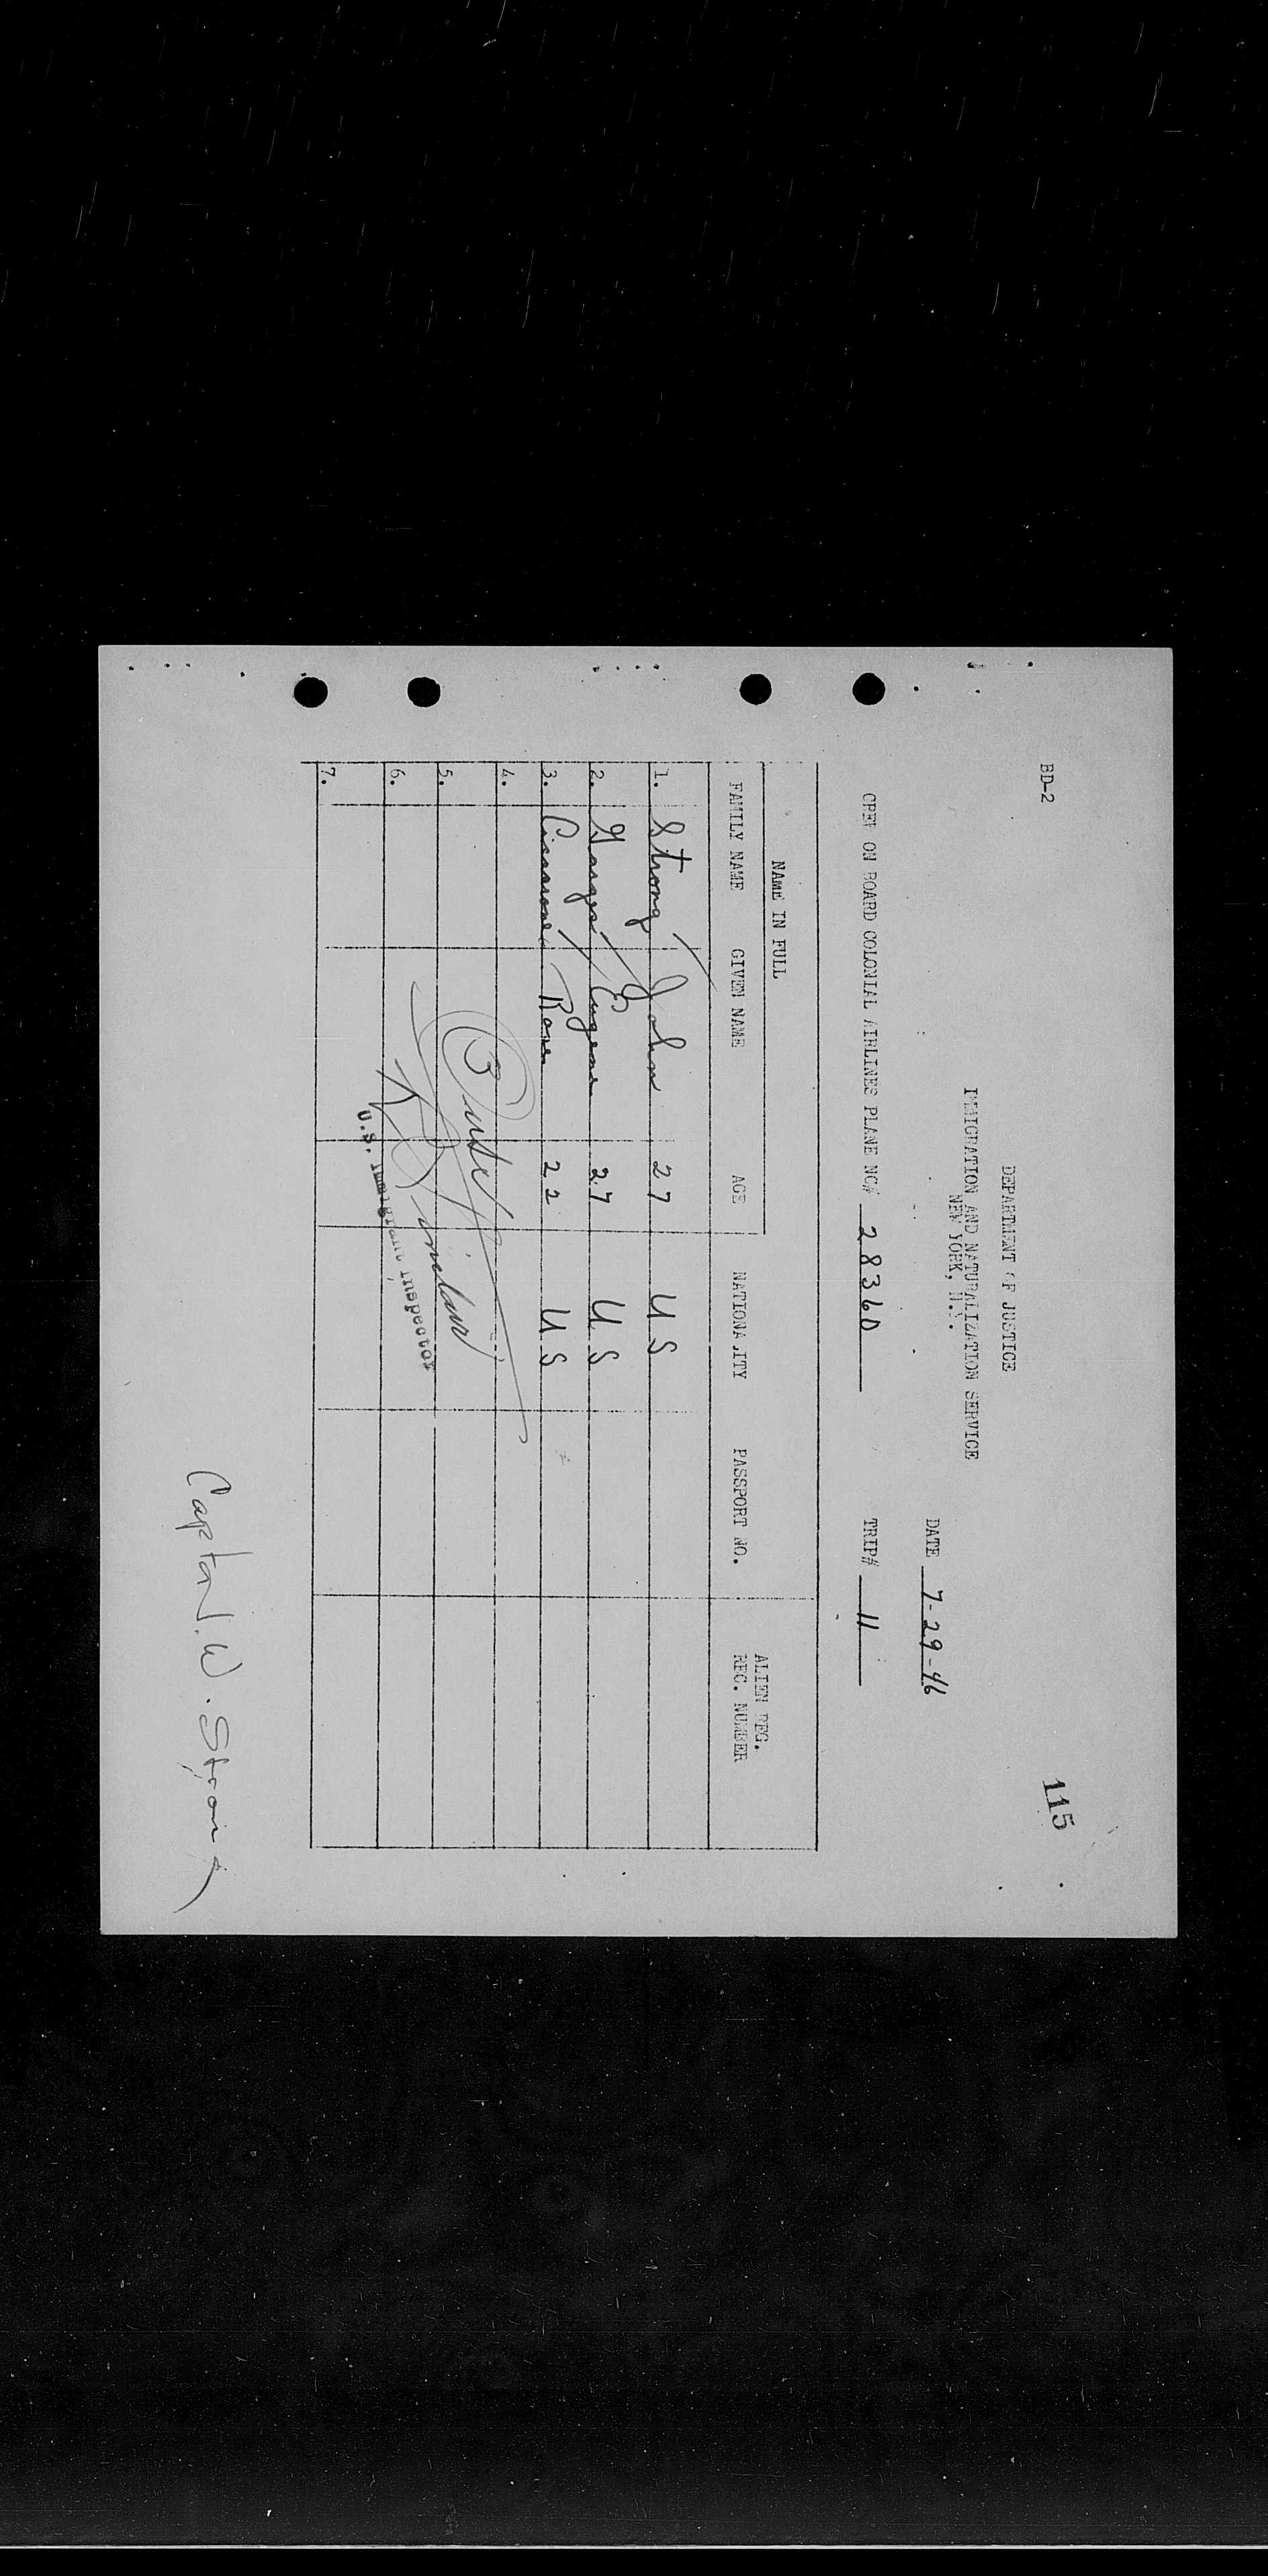 BD-2
115
DEPARTMENT OF JUSTICE
IMMIGRATION AND NATURALIZATION SERVICE
NEW YORK, N.Y.
DATE 7-29-46
CREW ON BOARD COLONIAL AIRLINES PLANE NC# 28360 TRIP# 11
NAME IN FULL
ALIEN REG.
FAMILY NAME GIVEN NAME AGE NATIONALITY PASSPORT NO. REC. NUMBER
1. Strong John 27 US
2. Eugene 27 US
3. Rose 22 US
4.
5.
6.
U.S. Immigration Inspector
7.
Capt J. W. Strong